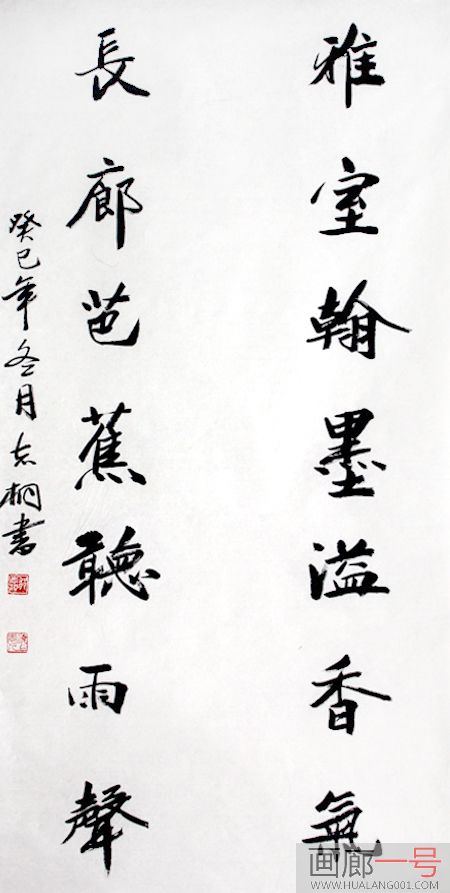 雅室翰墨溢香氣
長廊芭蕉聽雨聲
癸巳年冬月志桐書
画廊一号
WWW.HUALANG001.COM